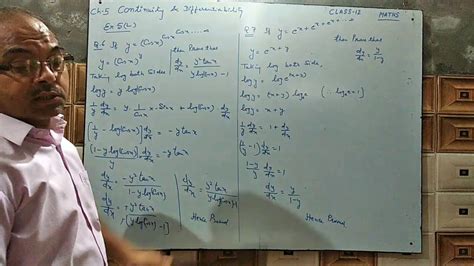 Ch.5 Continuity & Differentiability
CLASS-12 MATHS
Ex 5(L)
Q.6 If y = (Cosx)^(Cosx)^(Cosx)....∞
then Prove that
y = (Cosx)^y
dy/dx = y²tanx/(ylog(Cosx)-1)
Taking log both Sides
logy = y log(Cosx)
1/y dy/dx = y. 1/Cosx x-Sinx + log(Cosx) dy/dx
(1/y - log(Cosx)) dy/dx = -y tanx
(1-ylog(Cosx))/y dy/dx = -ytanx
dy/dx = -y²tanx/(1-ylog(Cosx))
dy/dx = +y²tanx/+[ylog(Cosx)-1]
dy/dx = y²tanx/(ylog(Cosx)-1)
Hence Proved
Q.7 If y = e^x+e^x+e^x+....∞
then Prove that
y = e^x+y
dy/dx = y/(1-y)
Taking log both side,
logy = log e^(x+y)
logy = (x+y) loge (∵ loge = 1)
logy = x+y
1/y dy/dx = 1 + dy/dx
(1/y - 1) dy/dx = 1
(1-y)/y dy/dx = 1
dy/dx = y/(1-y)
Hence Proved